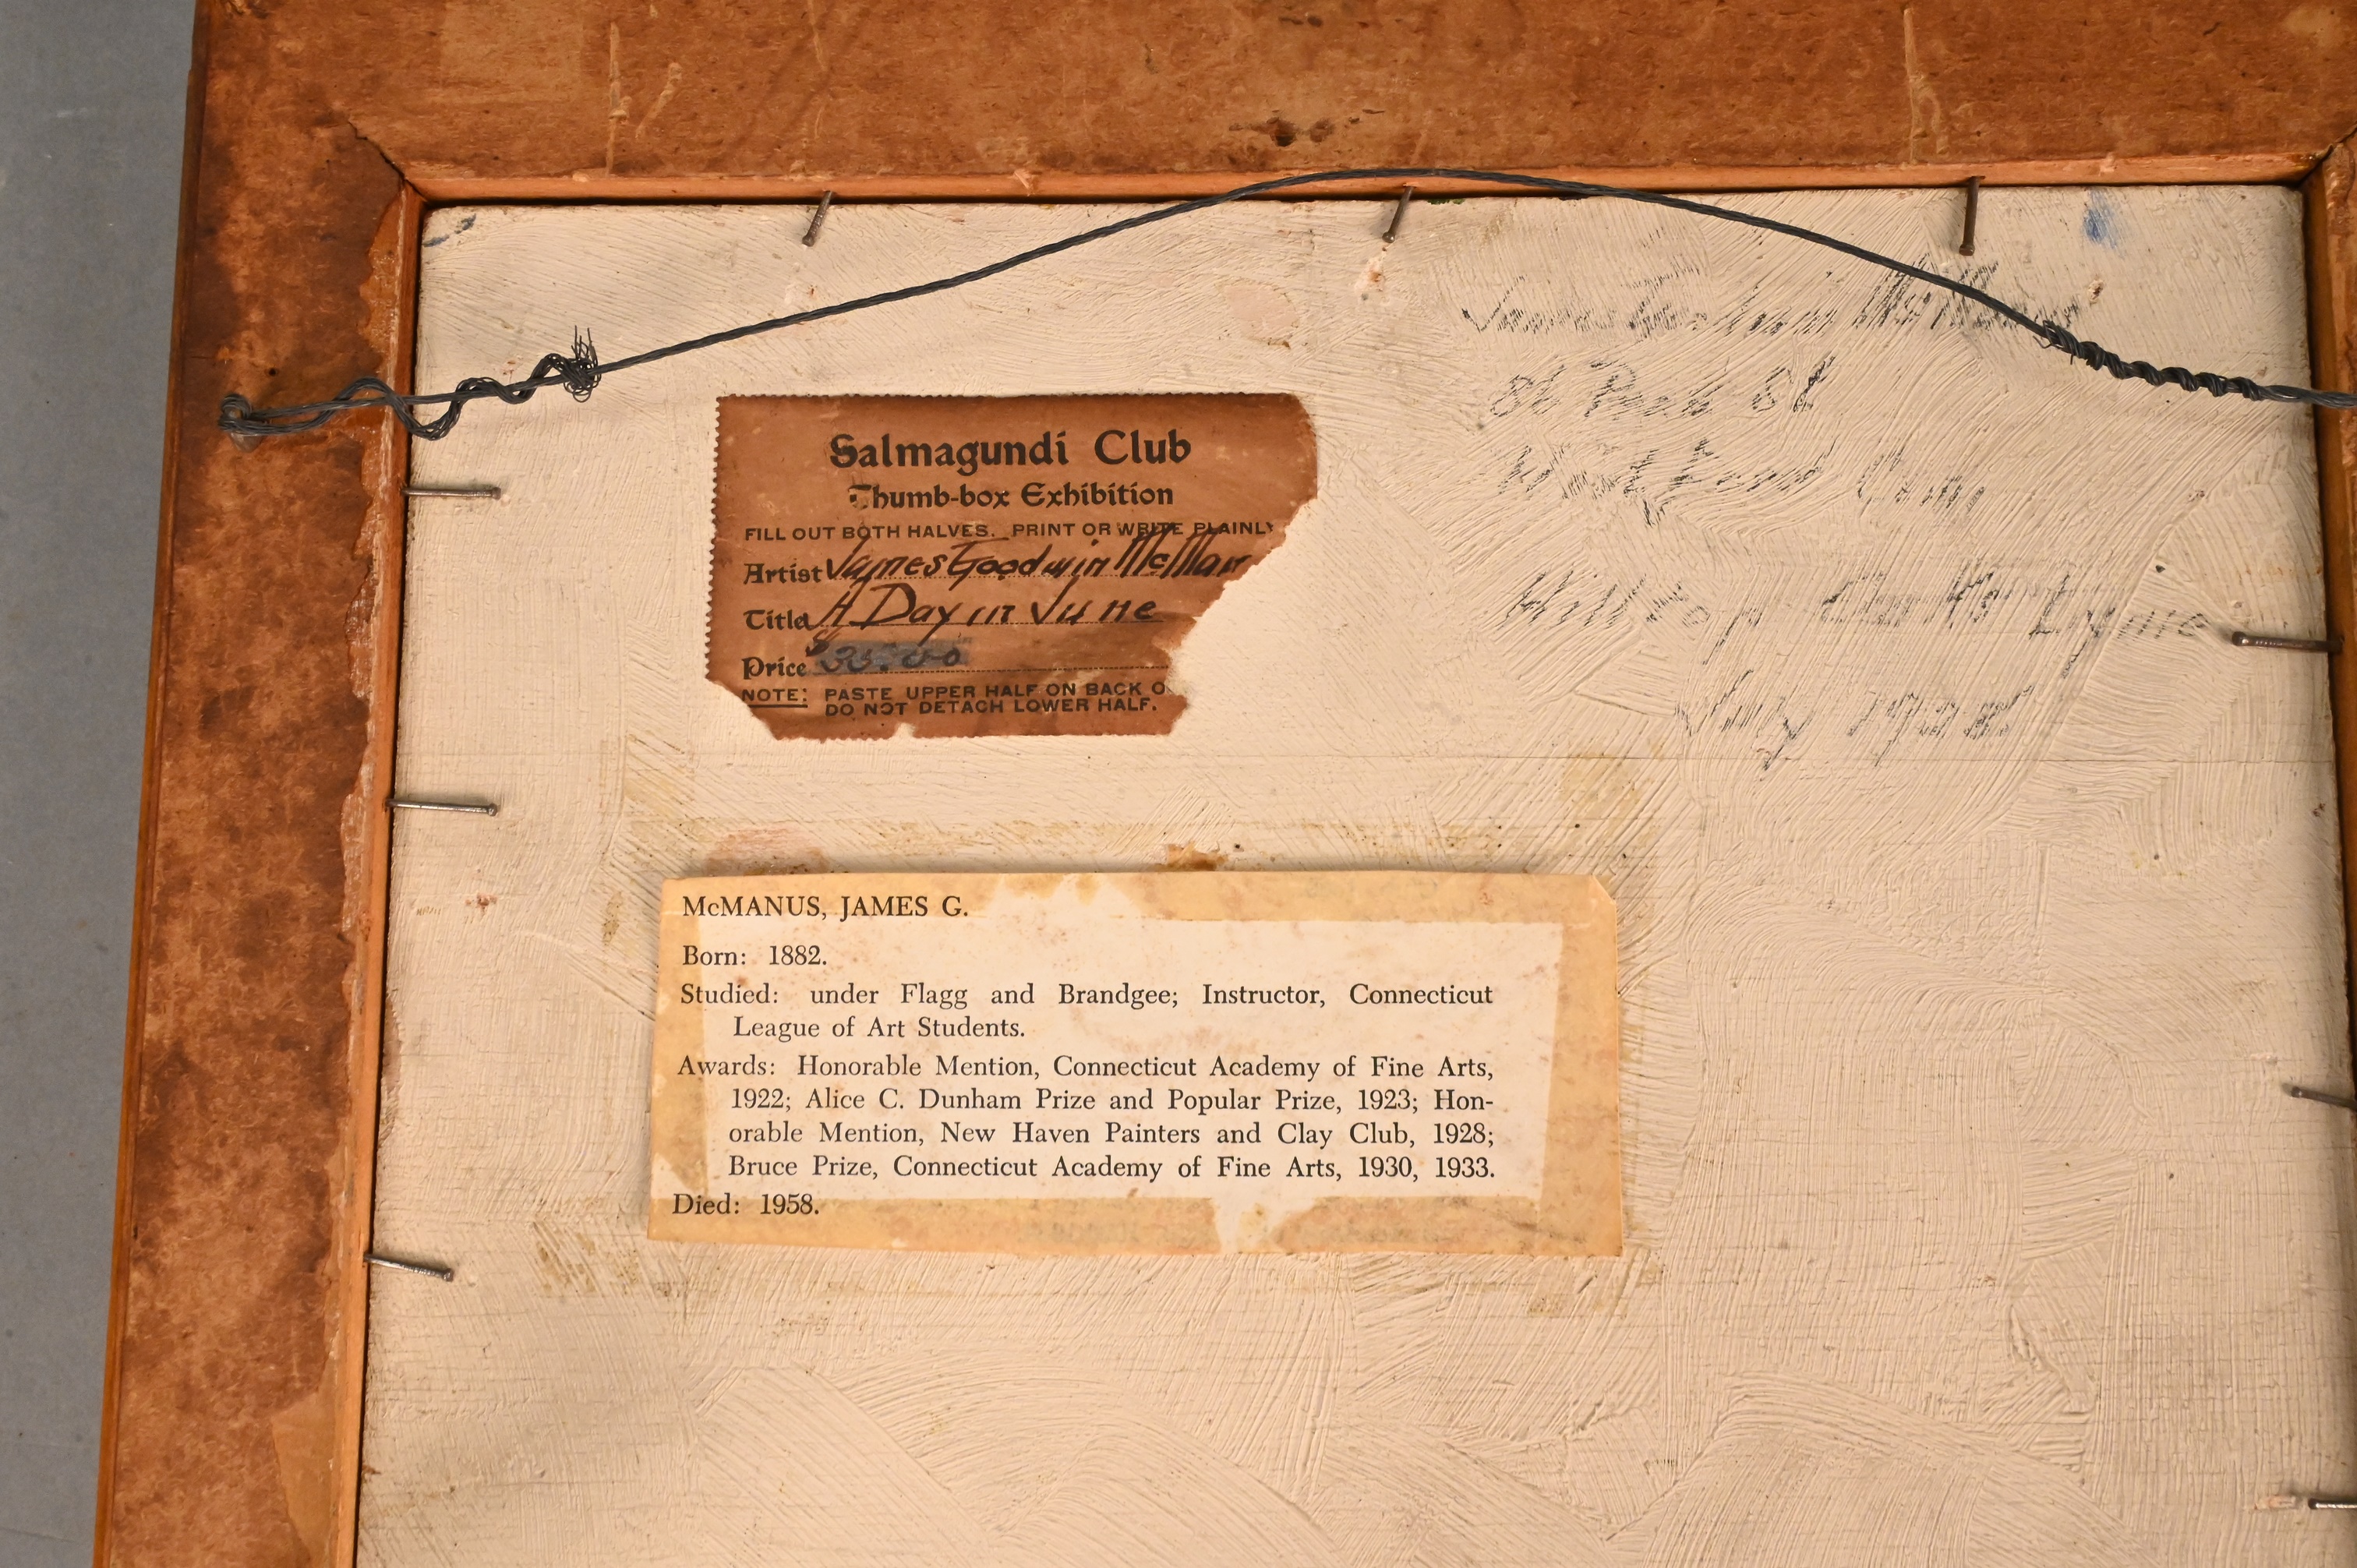 Salmagundi Club
Thumb-box Exhibition
FILL OUT BOTH HALVES. PRINT OR WRITE PLAINLY
Artist James Goodwin McMan
Title A Day in June
Price $35.00
NOTE: PASTE UPPER HALF ON BACK O
DO NOT DETACH LOWER HALF.
James Goodwin McManus
86 Park St
Hartford Conn.
Hill Top Old Lyme
July
McMANUS, JAMES G.
Born: 1882.
Studied: under Flagg and Brandgee; Instructor, Connecticut
League of Art Students.
Awards: Honorable Mention, Connecticut Academy of Fine Arts,
1922; Alice C. Dunham Prize and Popular Prize, 1923; Hon-
orable Mention, New Haven Painters and Clay Club, 1928;
Bruce Prize, Connecticut Academy of Fine Arts, 1930, 1933.
Died: 1958.